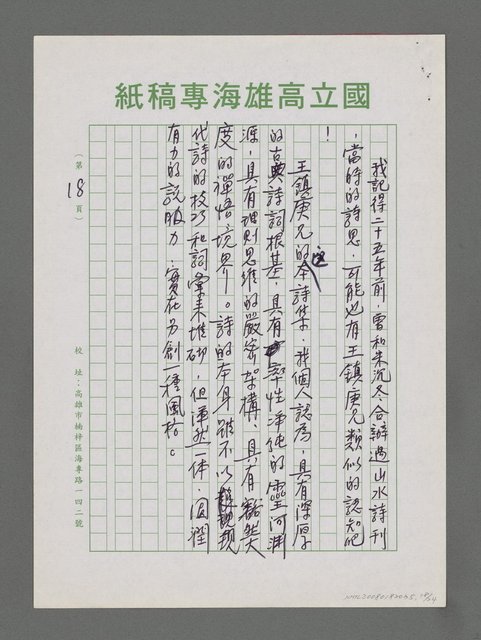 國立高雄海專稿紙
我記得二十五年前，曾和朱沉冬合辦過山水詩刊
，當時的詩思，可能也有王鎮庚兄類似的認知吧
！
王鎮庚兄的這本詩集，我個人認為，具有深厚
的古典詩詞根基，具有率性淨純的靈河淵
源，具有理則思維的嚴密架構，具有豁然大
度的禪悟境界。詩的本身雖不以表現現
代詩的技巧和詞彙來堆砌，但渾然一體，圓潤
有力的說服力，實在另創一種風格。
（第18頁）
校址：高雄市楠梓區海專路一四二號
NML20080182065 18/24